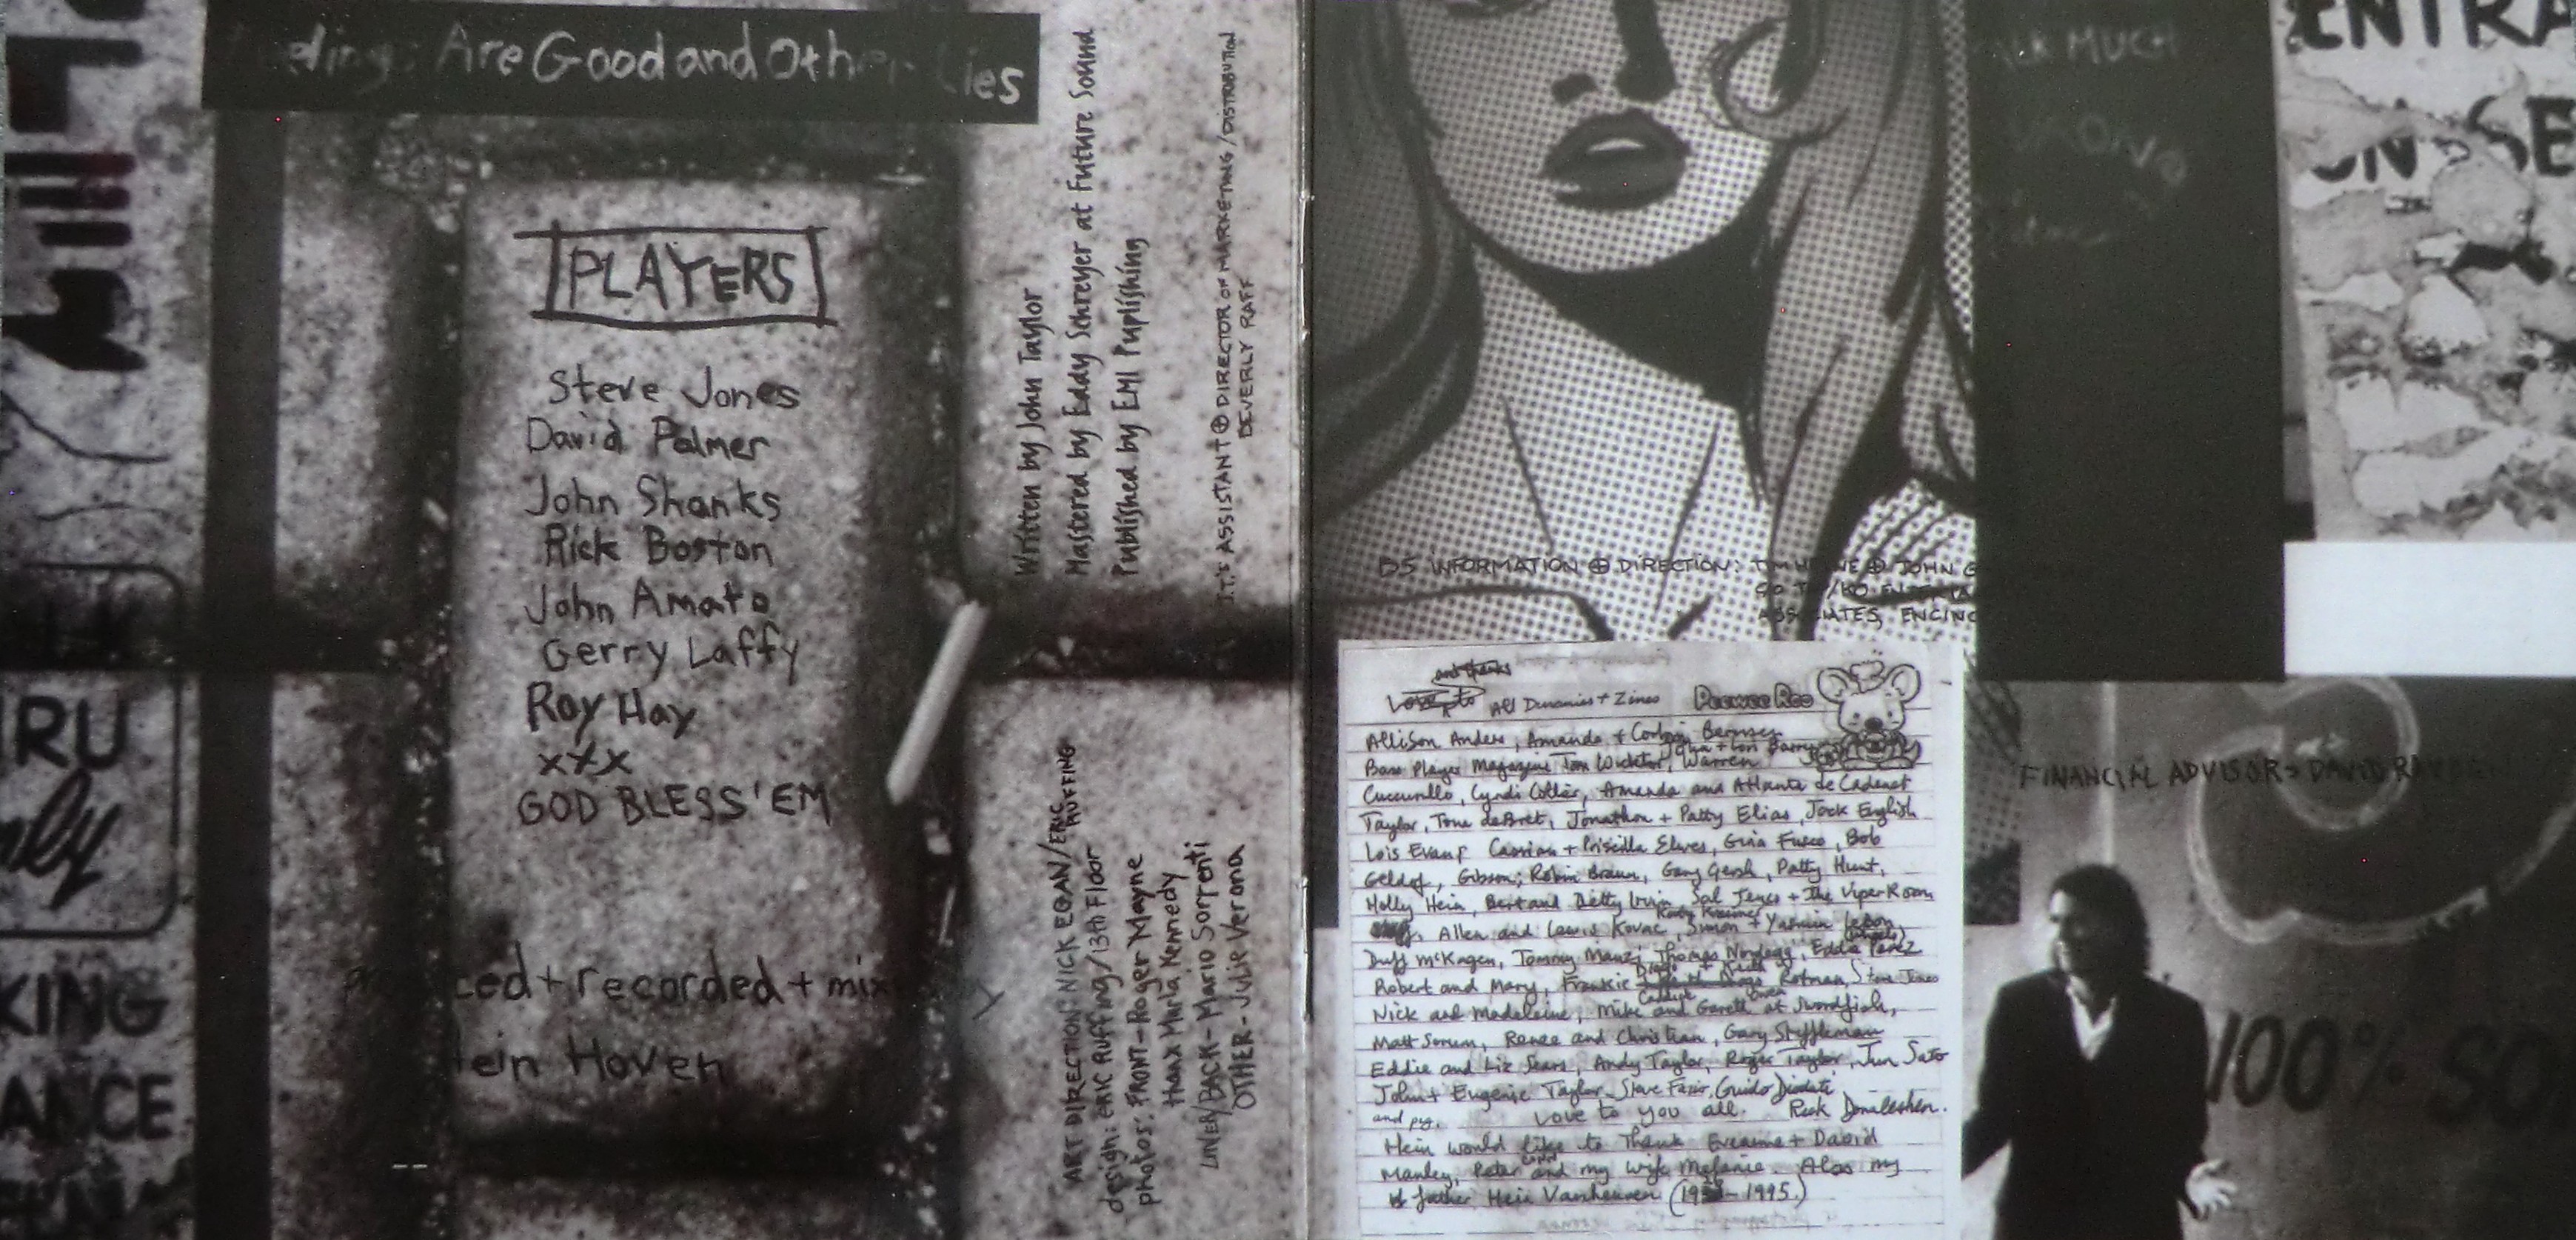 Are Good and Other Lies
PLAYERS
Steve Jones
David Palmer
John Shanks
Rick Boston
John Amato
Gerry Laffy
Roy Hay
xxx
GOD BLESS 'EM
ced + recorded + mix
Hein Hoven
Written by John Taylor
Mastered by Eddy Schreyer at Future Sound
Puplished by EMI Puplishing
J.T.'s ASSISTANT ⊕ DIRECTOR OF MARKETING / DISTRIBUTION
BEVERLY RAFF
ART DIRECTION: NICK EGAN / ERIC RUFFING
design: ERIC RUFFING / 13th Floor
photos: FRONT - Roger Mayne
thanx Marla Kennedy
LINER/BACK - Mario Sorrenti
OTHER - Julie Verona
RU
nly
KING
ANCE
ENTRA
SE
MUCH
B5 INFORMATION ⊕ DIRECTION:
ASSOCIATES, ENCINO
and thanks
to All Duranies + Zines PeeweeRoo
Allison Anders, Amanda + Corbin Bernsen
Bass Player Magazine Warren
Cuccurullo, Cyndi Amanda and Atlanta de Cadenet
Taylor, Tone deBret, Jonathon + Patty Elias, Jock English
Lois Evans Cassian + Priscilla Elwes, Gina Fusco, Bob
Geldof, Gibson, Robin Braun, Gary Gersh, Patty Hunt,
Holly Hein, Sal Jenco + The Viper Room
Allen and Lewis Kovac, Simon + Yasmin LeBon
Duff McKagen, Tommy Manzi, Thomas Nordegg, Eddie Perez
Robert and Mary, Frankie Rotman, Steve Jones
Nick and Madeleine, Mike and Garett at Swordfish,
Matt Sorum, Renee and Christian, Gary Stiffleman
Eddie and Liz Sears, Andy Taylor, Roger Taylor, Jun Sato
John + Eugenie Taylor, Steve Guido
and love to you all.
Hein would like to thank + David
Manley, Peter and my wife Melanie. Also my
father Hein Vanheuven ( - 1995)
FINANCIAL ADVISOR > DAVID
100% SO